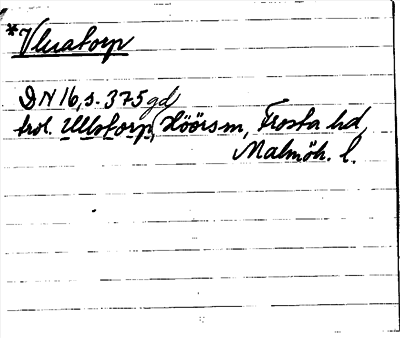 *Vluatorp
DN 16, s. 375 gd
trol. Ullstorp, Höörs sn, Frosta hd,
Malmöh. l.